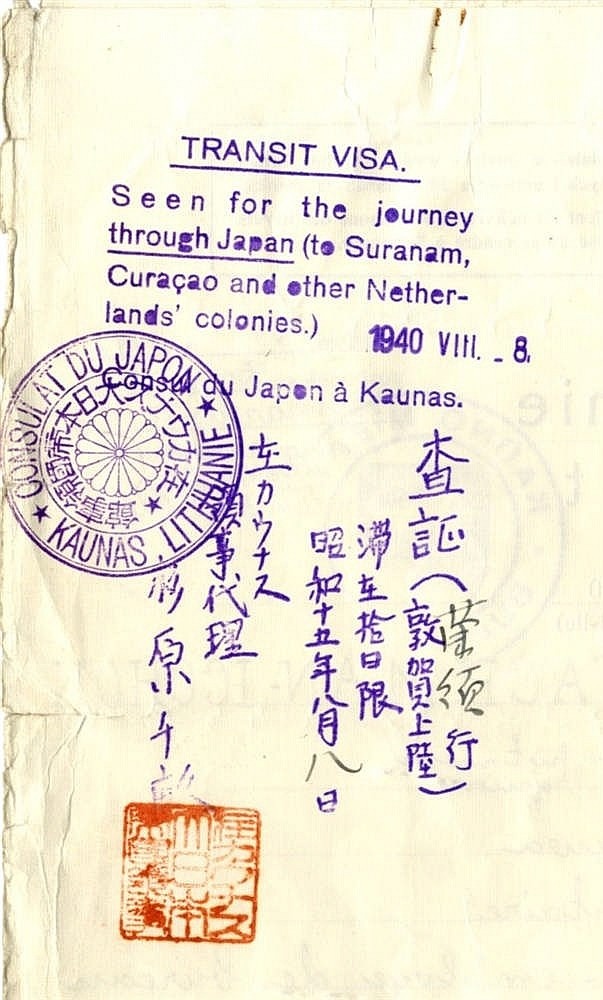 TRANSIT VISA.
Seen for the journey
through Japan (to Suranam,
Curaçao and other Nether-
lands' colonies.)
1940 VIII. - 8.
Consul du Japon à Kaunas.
CONSULAT DU JAPON
KAUNAS, LITHUANIE
在カウナス大日本帝國領事館
査証(
行
敦賀上陸)
滞在拾日限
昭和十五年八月八日
在カウナス
領事代理
杉原千畝